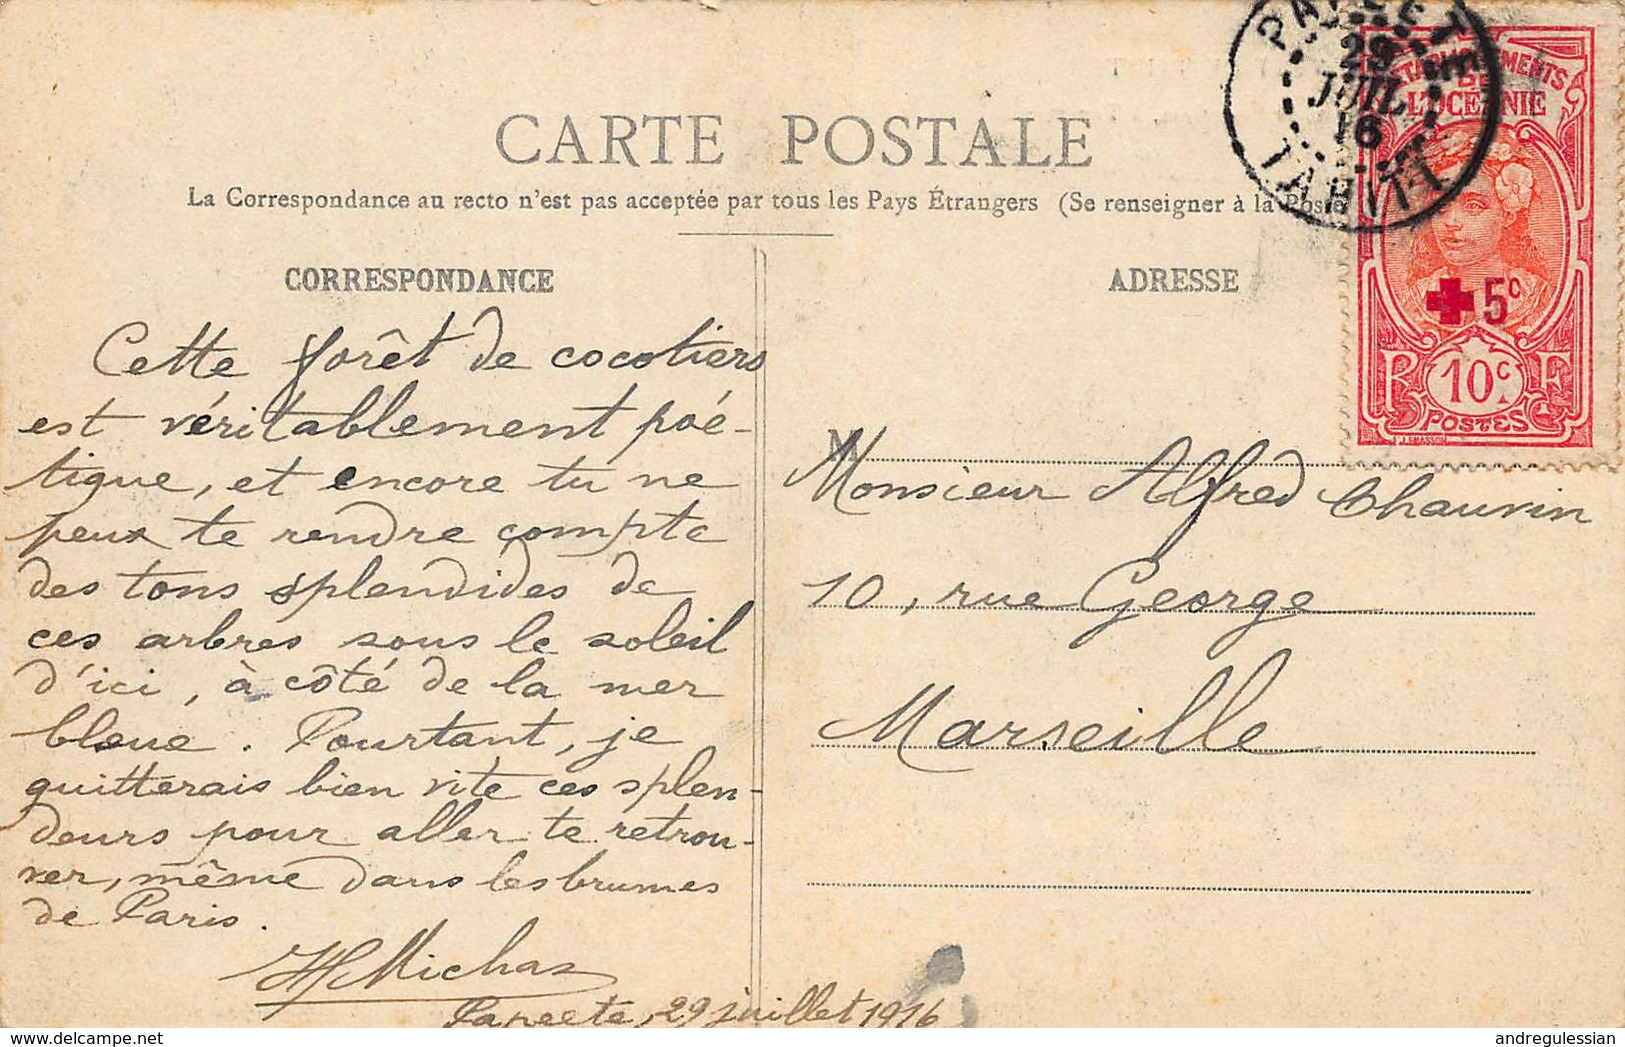 CARTE POSTALE
La Correspondance au recto n'est pas acceptée par tous les Pays Étrangers (Se renseigner à la Poste
CORRESPONDANCE
Cette forêt de cocotiers
est véritablement poé-
tique, et encore tu ne
peux te rendre compte
des tons splendides de
ces arbres sous le soleil
d'ici, à côté de la mer
bleue. Pourtant, je
quitterais bien vite ces splen-
deurs pour aller te retrou-
ver, même dans les brumes
de Paris.
Michaz
Papeete, 29 juillet 1916
ADRESSE
M
Monsieur Alfred Chauvin
10, rue George
Marseille
PAPEETE
29
JUIL
16
TAHITI
ETABLISSEMENTS
DE
L'OCEANIE
5c
R 10c F
POSTES
J. LEMASSON
andregulessian